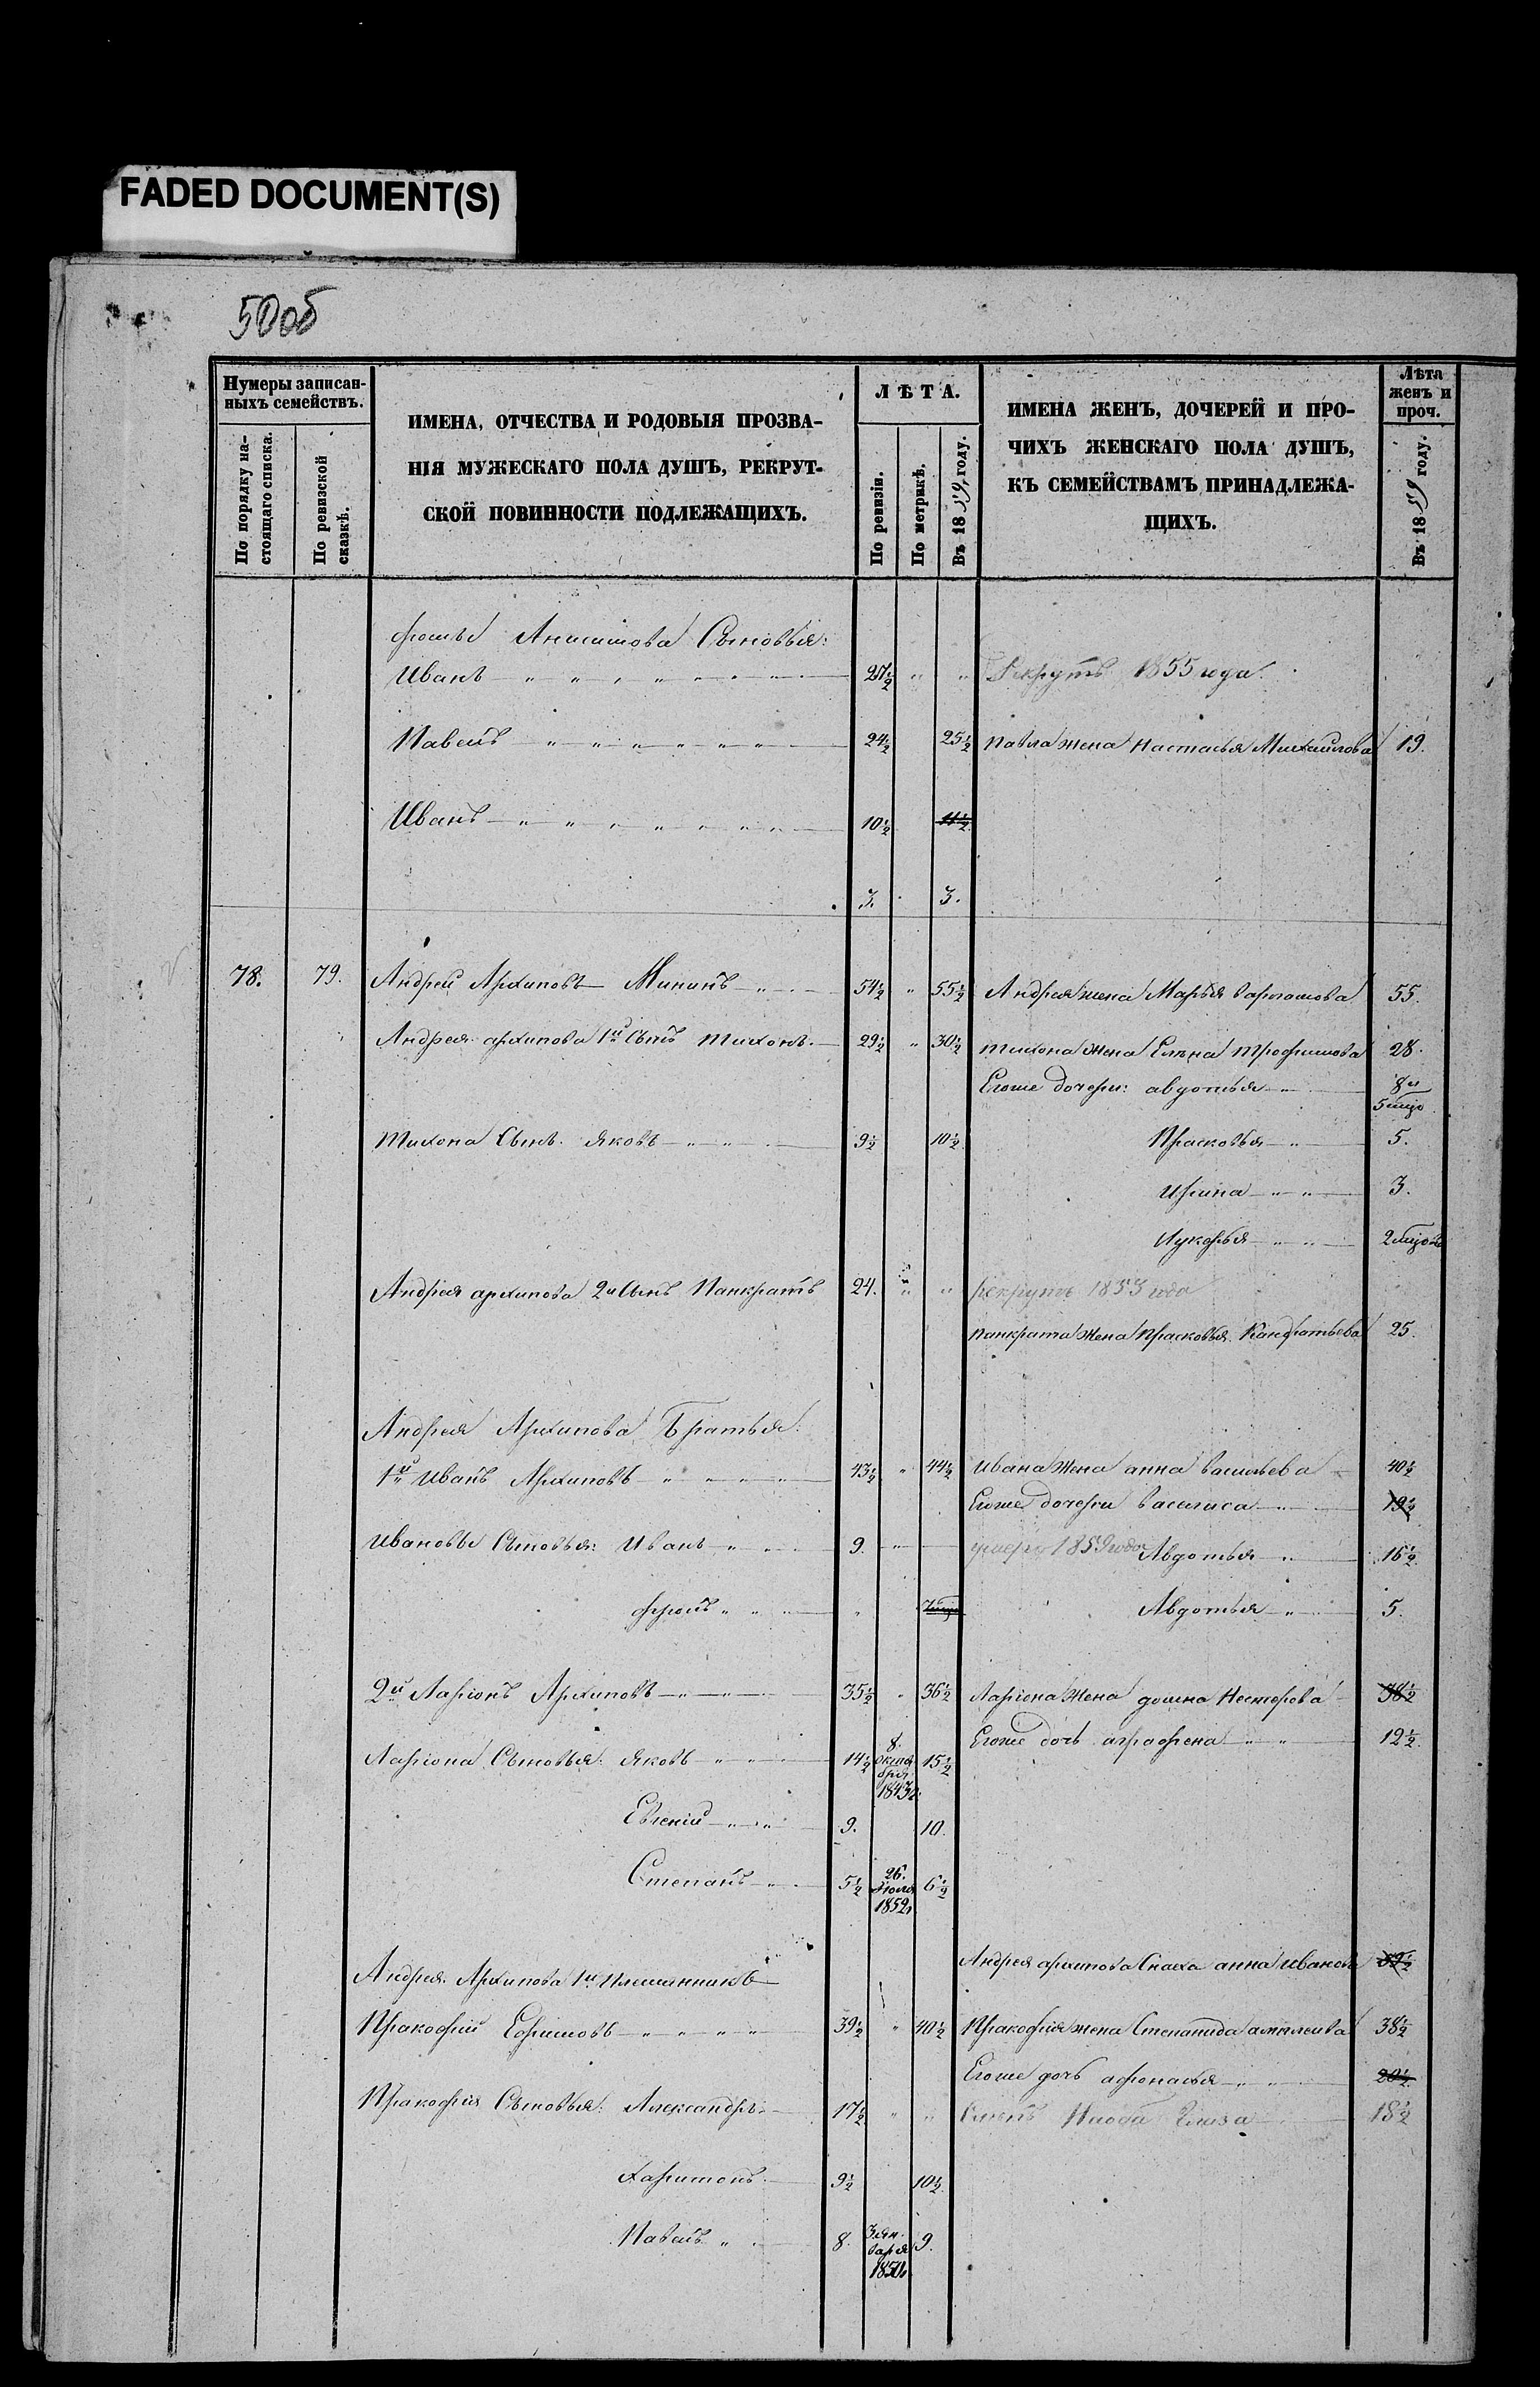 FADED DOCUMENT(S)
50об
Нумеры записан-
ныхъ семействъ.
По порядку на-
стоящаго списка.
По ревизской
сказкѣ.
ИМЕНА, ОТЧЕСТВА И РОДОВЫЯ ПРОЗВА-
НІЯ МУЖЕСКАГО ПОЛА ДУШЪ, РЕКРУТ-
СКОЙ ПОВИННОСТИ ПОДЛЕЖАЩИХЪ.
ЛѢТА.
По ревизіи.
По метрикѣ.
Въ 1859 году.
ИМЕНА ЖЕНЪ, ДОЧЕРЕЙ И ПРО-
ЧИХЪ ЖЕНСКАГО ПОЛА ДУШЪ,
КЪ СЕМЕЙСТВАМЪ ПРИНАДЛЕЖА-
ЩИХЪ.
Лѣта
женъ и
проч.
Въ 1859 году.
Анисимова Сыновья:
Иванъ 27½ " " Рекрутъ 1855 года.
Павелъ 24½ 25½ Павла жена Настасья Михайлова 19.
Иванъ 10½ 11½
3. 3.
78. 79. Андрей Архиповъ Мининъ 54½ " 55½ Андрея жена Марья 55.
Андрея архипова 1й Сынъ Тихонъ 29½ " 30½ Тихона жена Елена Трофимова 28.
Егоже дочери: авдотья 8 и
5 мцо
Тихона Сынъ Яковъ 9½ 10½ Прасковья 5.
Ирина 3.
Лукерья 2 мцовъ
Андрея архипова 2й Сынъ Панкратъ 24. " " рекрутъ 1853 года
панкрата жена Прасковья Кандратьева 25.
Андрея Архипова Братья:
1й Иванъ Архиповъ 43½ " 44½ Ивана жена анна васильева 40½
Егоже дочери василиса 19½
Ивановы Сыновья: Иванъ 9. умеръ 1859 года Авдотья 16½
" Авдотья 5.
2й Ларіонъ Архиповъ 35½ " 36½ Ларіона жена домна Несторова 38½
Егоже дочь аграфена 12½
Ларіона Сыновья: Яковъ 14½ 8 октя-
бря
1843 15½
Евгений 9. 10.
Степанъ 5½ 26
Июля
1852 6½
Андрея архипова Сноха анна иванова
Андрея Архипова 1й Племянникъ
Пракофий Ефимовъ 39½ " 40½ Пракофия жена Степанида 38½
Егоже дочь афонасья 20½
Пракофия Сыновья: Александръ 17½ " " 18½
Харитонъ 9½ 10½
Павелъ 8. 3 ян-
варя
1850 9.